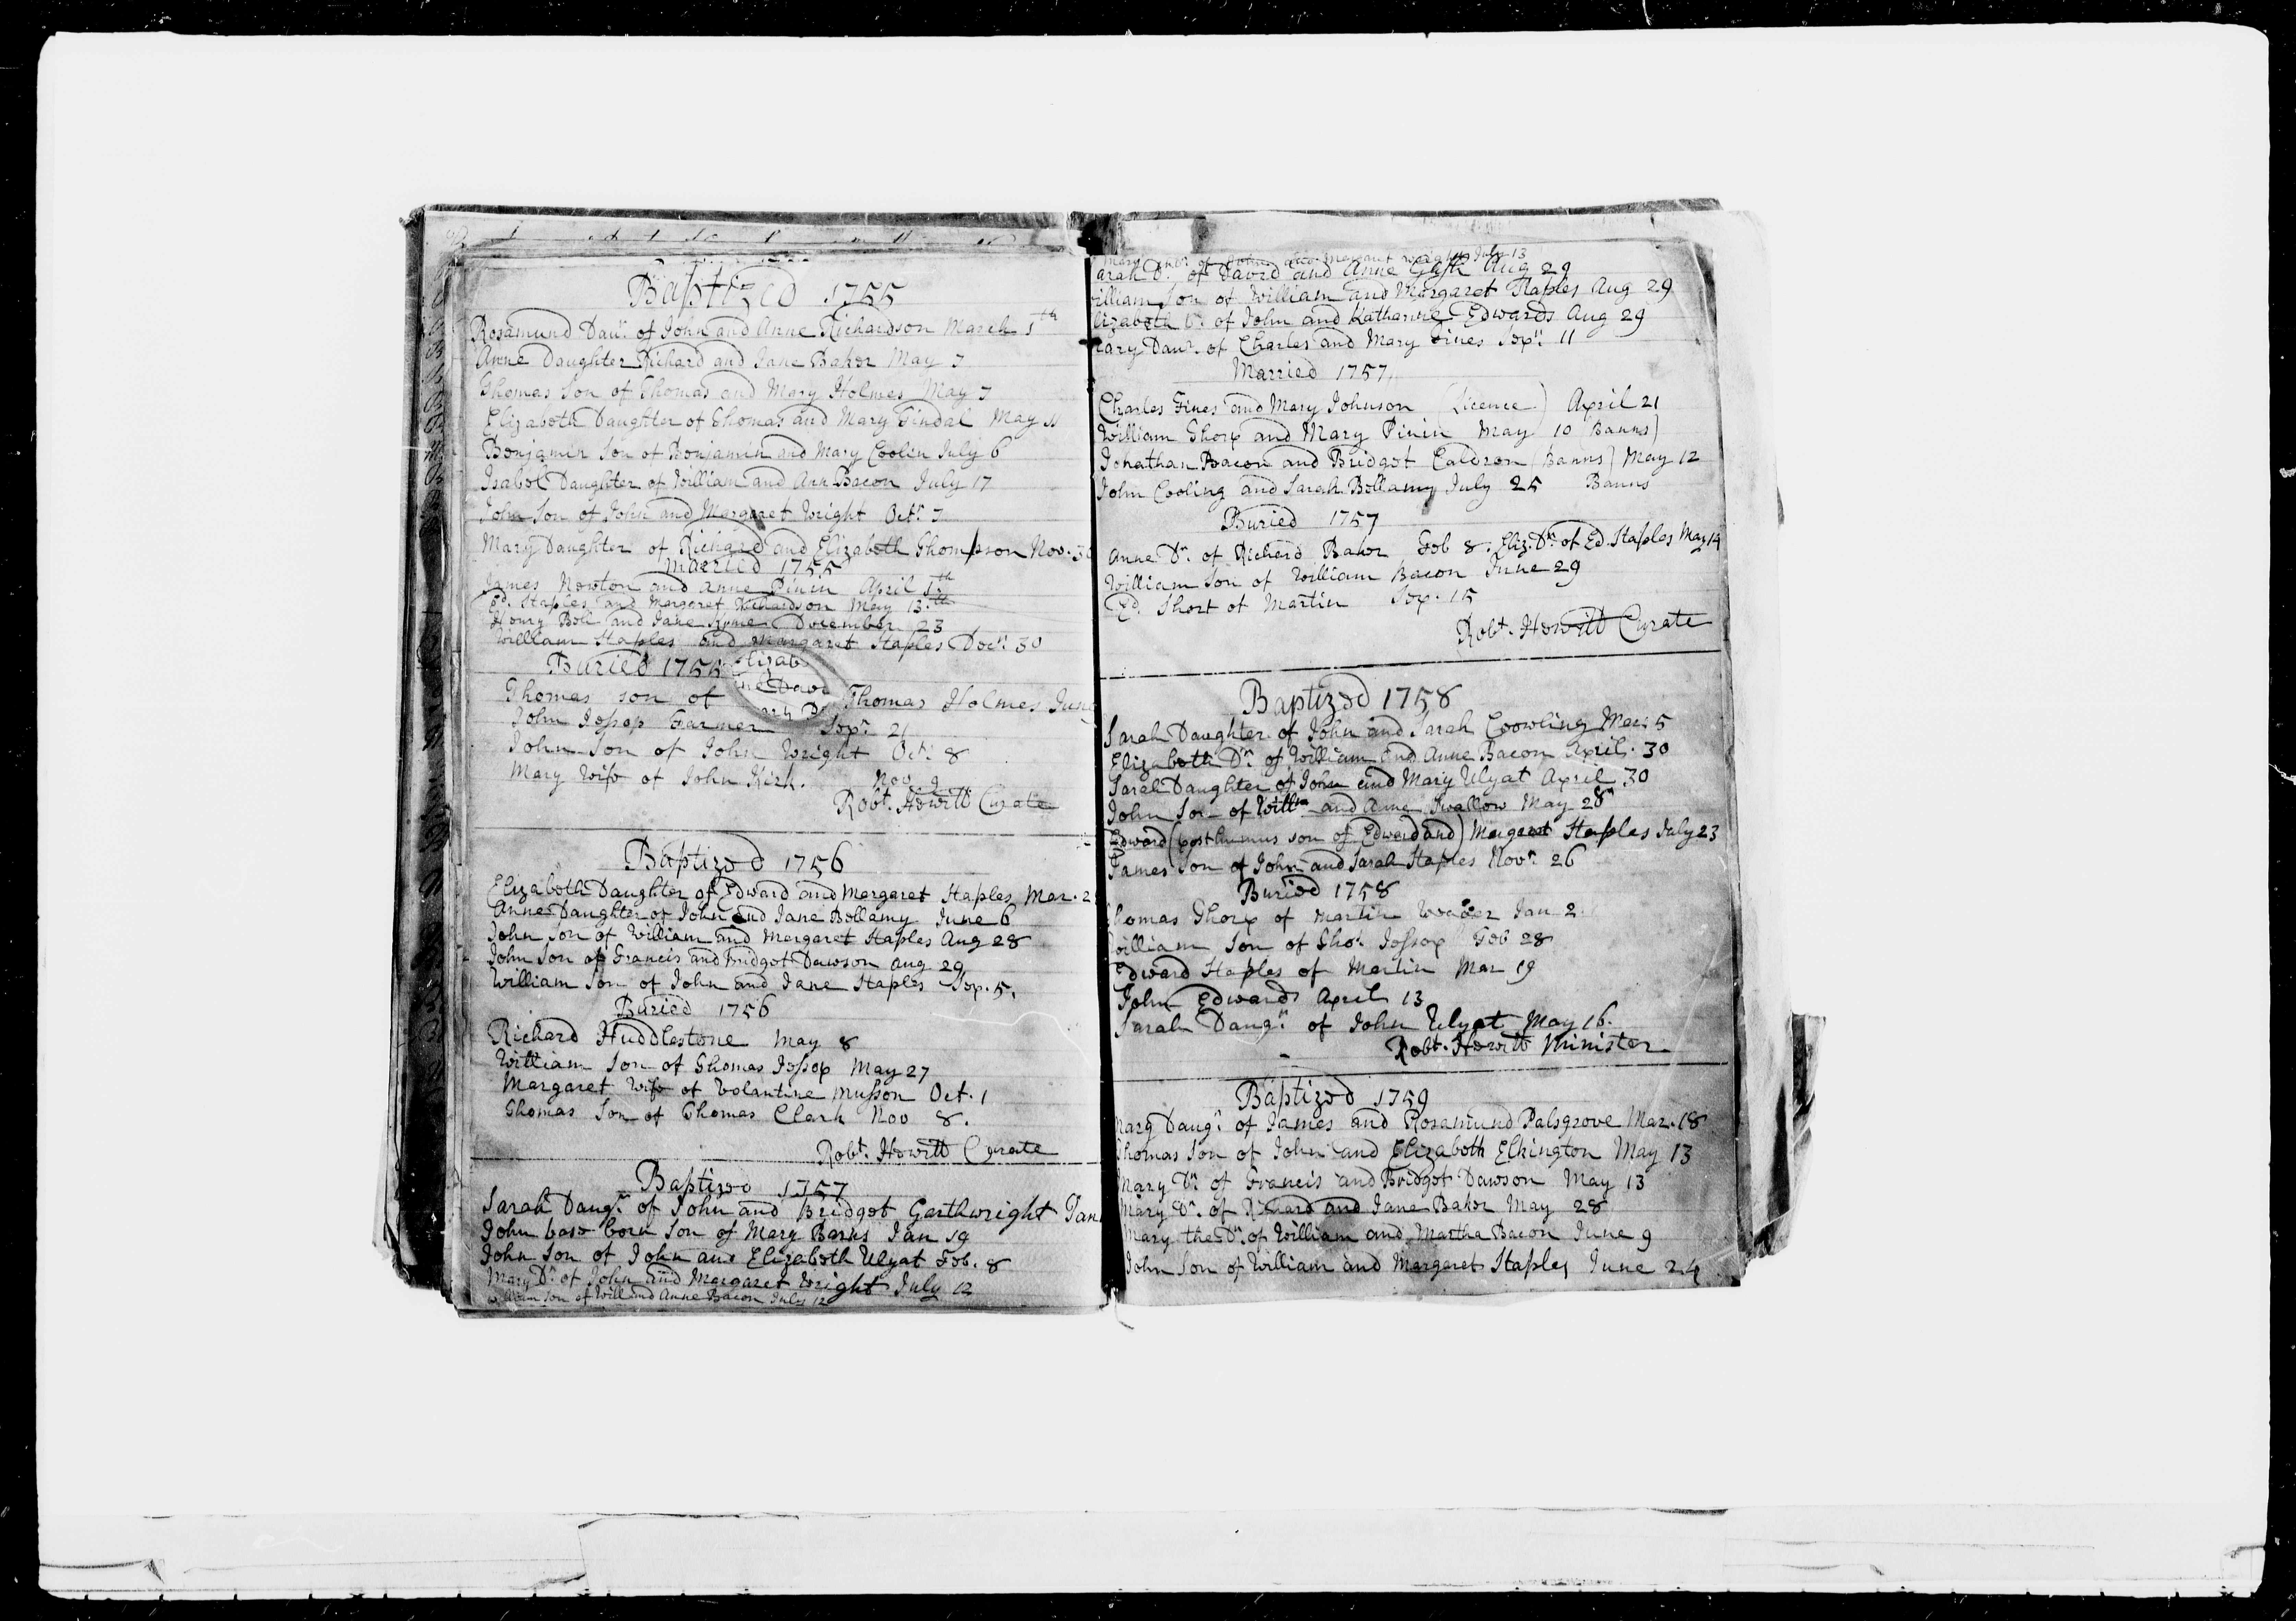 Baptized 1755
Rosamund Daur. of John and Anne Richardson March 5th
Anne Daughter Richard and Jane Baker May 7
Thomas Son of Thomas and Mary Holmes May 7
Elizabeth Daughter of Thomas and Mary Tindal May 11
Benjamin Son of Benjamin and Mary Coolin July 6
Isabel Daughter of William and Ann Bacon July 17
John Son of John and Margaret Wright Octr. 7
Mary Daughter of Richard and Elizabeth Thompson Nov. 30
Married 1755
James Newton and Anne Pinin April 5th
Ed. Staples and Margaret Richardson May 13th
Henry Bell and Jane December 23
William Staples and Margaret Staples Decr. 30
Buried 1755 Elizab
Thomas son of Thomas Holmes June
John Jessop Farmer Sepr. 21
John Son of John Wright Octr. 8
Mary Wife of John Kirk. Nov. 9
Robt. Howitt Curate
Baptized 1756
Elizabeth Daughter of Edward and Margaret Staples Mar. 2
Anne Daughter of John and Jane Bellamy June 6
John Son of William and Margaret Staples Aug 28
John Son of Francis and Bridget Dawson Aug 29
William Son of John and Jane Staples Sep. 5.
Buried 1756
Richard Huddlestone May 8
William Son of Thomas Jessop May 27
Margaret Wife of Valantine Musson Oct. 1
Thomas Son of Thomas Clark Nov 8.
Robt. Howitt Curate
Baptized 1757
Sarah Daugr. of John and Bridget Garthwright Jan
John base born Son of Mary Barns Jan 19
John Son of John and Elizabeth Ulyat Feb. 8
Mary Dr. of John and Margaret Wright July 12
William Son of Will and Anne Bacon July 12
Mary Dr. of John and Margaret Wright July 13
arah Dr. of David and Anne Gash Aug 29
illiam Son of William and Margaret Staples Aug 29
lizabeth Dr. of John and Katharine Edwards Aug 29
ary Daur. of Charles and Mary Fines Sepr. 11
Married 1757
Charles Fines and Mary Johnson (Licence) April 21
William Thorp and Mary Pinin May 10 (Banns)
Johathan Bacon and Bridget Caldron (Banns) May 12
John Cooling and Sarah Bellamy July 25 Banns
Buried 1757
Anne Dr. of Richard Baker Feb 8. Eliz. Dr. of Ed. Staples May 14
William Son of William Bacon June 29
Ed. Short of Martin Sep. 15
Robt. Howitt Curate
Baptized 1758
Sarah Daughter of John and Sarah Coowling Mar: 5
Elizabeth Dr. of William and Anne Bacon April. 30
Sarah Daughter of John and Mary Ulyat April 30
John Son of Willm and Anne Swallow May 28
Edward (posthumus son of Edward and) Margaret Staples July 23
James Son of John and Sarah Staples Novr. 26
Buried 1758
homas Thorp of Martin Weaver Jan 2
William Son of Thos. Jessop Feb 28
Edward Staples of Martin Mar 19
John Edwards April 13
Sarah Daugr. of John Ulyat May 16.
Robt. Howitt Minister
Baptized 1759
Mary Daugr. of James and Rosamund Palsgrove Mar. 18
Thomas Son of John and Elizabeth Elkington May 13
Mary Dr. of Francis and Bridget Dawson May 13
Mary Dr. of Richard and Jane Baker May 28
Mary the Dr. of William and Martha Bacon June 9
John Son of William and Margaret Staples June 24